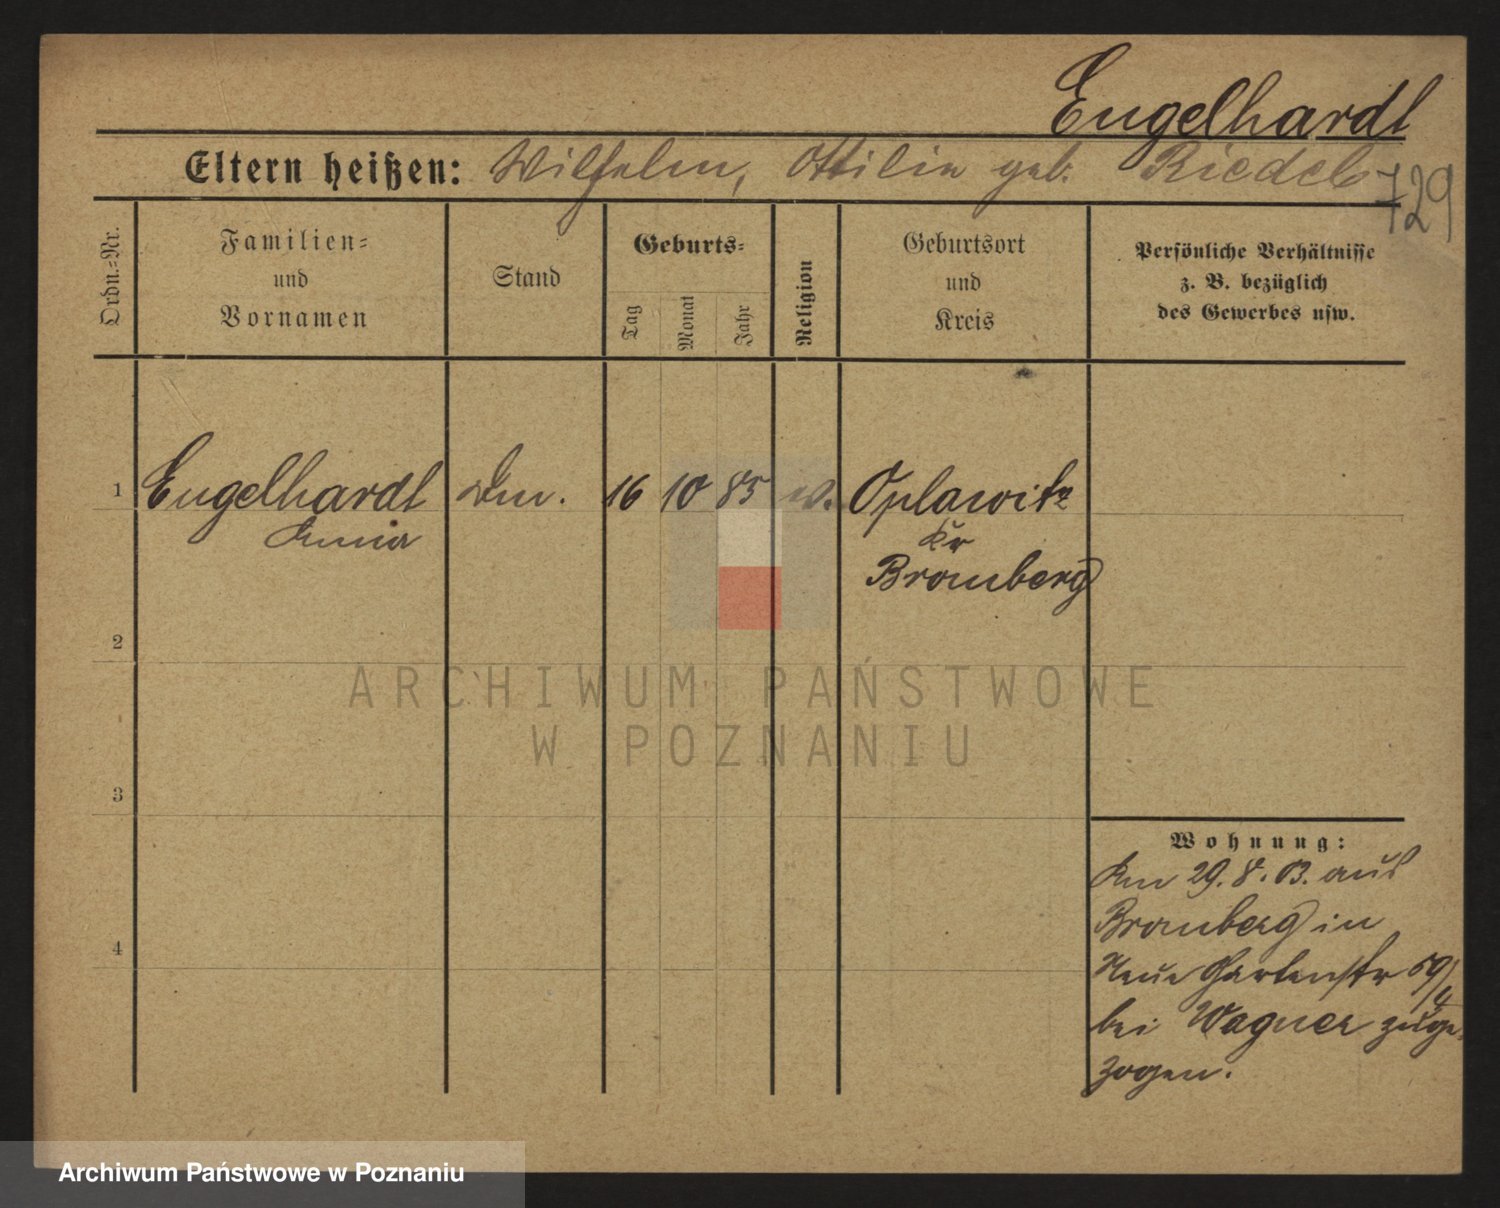 Engelhardt
Eltern heißen: Wilhelm, Ottilie geb. Riedel
729
Ordn.=Nr.
Familien=
und
Vornamen
Stand
Geburts=
Tag
Monat
Jahr
Religion
Geburtsort
und
Kreis
Persönliche Verhältnisse
z. B. bezüglich
des Gewerbes usw.
1 Engelhardt 16 10 85 Oplawitz
Anna Kr
Bromberg
2
3
4
Wohnung:
Am 29. 8. 03. aus
Bromberg in
Neue Gartenstr 59/4
bei Wagner zuge-
zogen.
ARCHIWUM PAŃSTWOWE
W POZNANIU
Archiwum Państwowe w Poznaniu